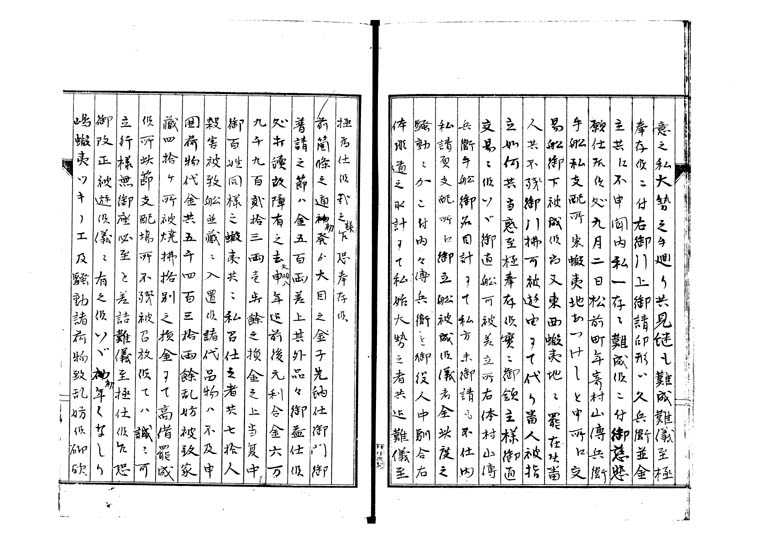 意之私大勢之手廻り共見継も難成難儀至極
奉存候ニ付右御川上御請印形ハ久兵衛並金
主共ニ不申聞内私一存ニ難成候ニ付御慈悲
願仕候処九月二日松前町年寄村山傳兵衛
手船私支配所東蝦夷地あつけしと申所江交
易船御下被成候為又東西蝦夷地ニ罷在候船
人共不残御川拂可被遊由ニて代り番人被指
立如何共当惑至極奉存候實ニ御領主様御直
交易ニ候ハゞ御直船可被差立所右体村山傳
兵衛手船御名目計ニて私方未御請も不仕内
私請負支配所江御立船被成候儀者全此度之
騒動ニかこ付内々傳兵衛を御役人中馴合右
体非道之取計ニて私始大勢之者共迄難儀至
極為仕候段歎ケ敷奉存候
前箇條之通初発より大目之金子先納仕御門御
普請之節ハ金五百両差上其外品々御益仕候
処打續故障有之去申年迄前後元利合金六万
九千九百弐拾三両壱歩餘之損金之上当夏中
御百姓同様之蝦夷共ニ私召仕之者共七拾人
殺害被致船並藏ニ入置候諸代呂物ハ不及申
囲荷物代金共五千四百三拾両餘乱妨被致家
藏四拾ケ所被焼拂格別之損金ニて高借罷成
候所此節支配場所不残被召放候てハ誠ニ可
立行様無御座必至と差詰難儀至極仕候乍恐
御改正被遊候儀ニ有之候ハゞ初年くなしり
嶋蝦夷ツキノエ及騒動諸荷物致乱妨候砌欤